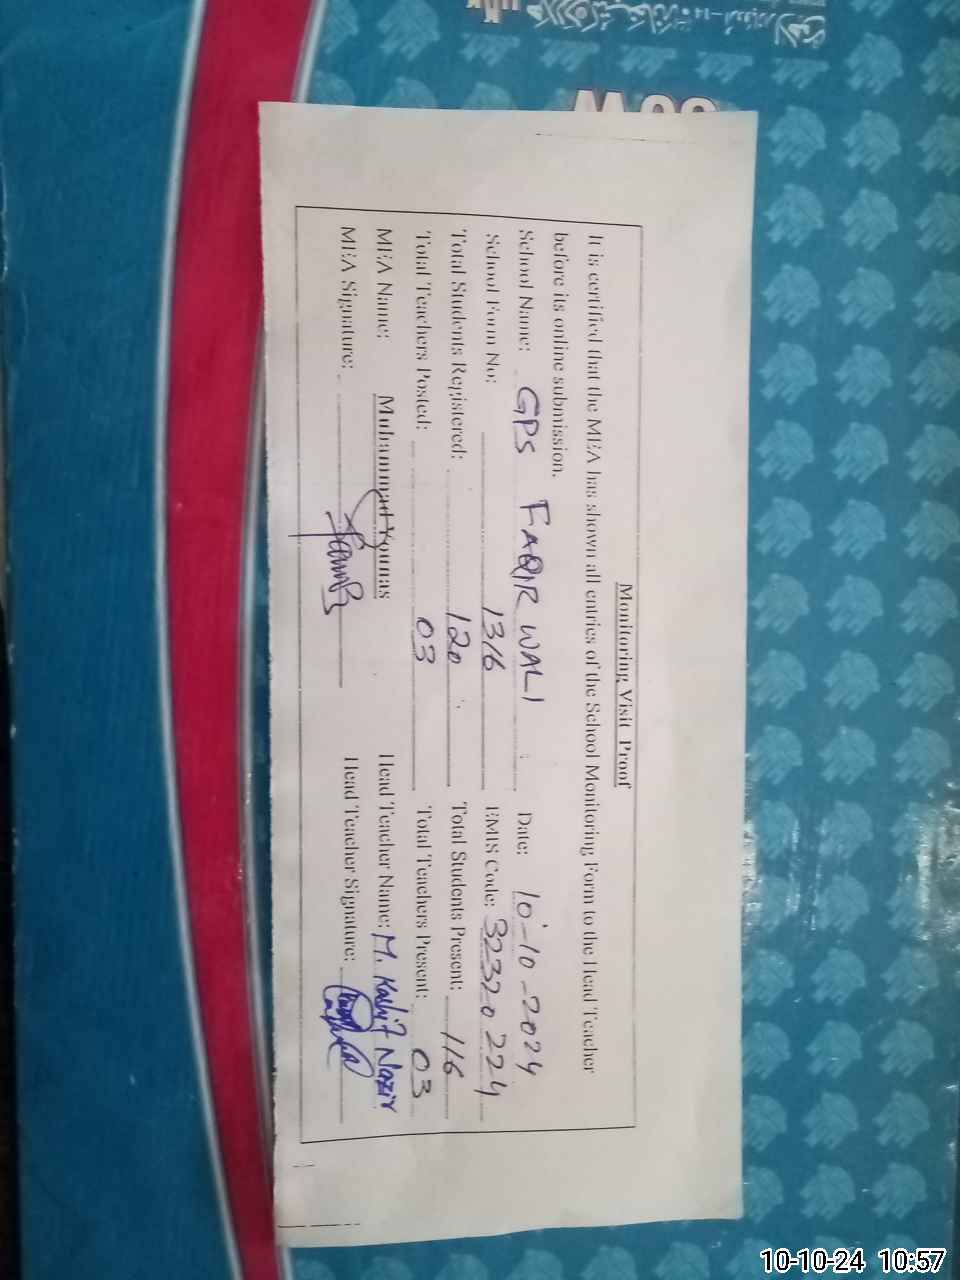 Monitoring Visit Proof
It is certified that the MEA has shown all entries of the School Monitoring Form to the Head Teacher
before its online submission.
School Name: GPS FAQIR WALI Date: 10-10-2024
School Form No: 1316 EMIS Code: 32320224
Total Students Registered: 120 Total Students Present: 116
Total Teachers Posted: 03 Total Teachers Present: 03
MEA Name: Muhammad Younas Head Teacher Name: M. Kashif Nazir
MEA Signature: Head Teacher Signature:
10-10-24 10:57